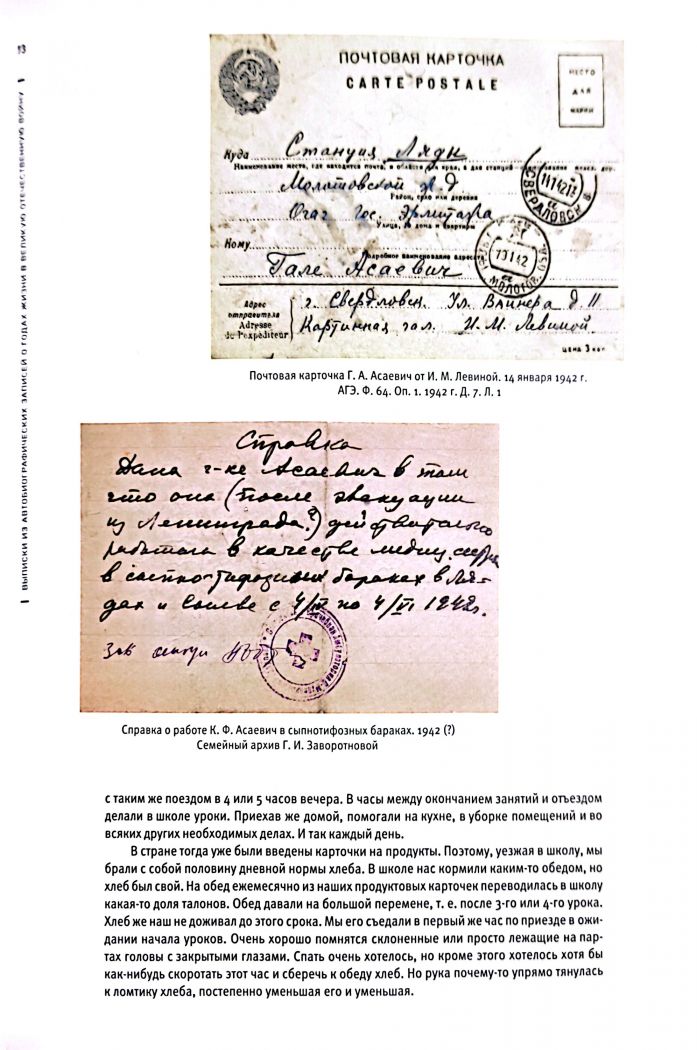 13
ВЫПИСКИ ИЗ АВТОБИОГРАФИЧЕСКИХ ЗАПИСЕЙ О ГОДАХ ЖИЗНИ В ВЕЛИКУЮ ОТЕЧЕСТВЕННУЮ ВОЙНУ
ПОЧТОВАЯ КАРТОЧКА
CARTE POSTALE
МЕСТО
ДЛЯ
МАРКИ
Куда Станция Ляды
Наименование места, где находится почта, и области или края, а для станций
Молотовской ж. д
Район, село или деревня
Очаг Гос. Эрмитажа
Улица, № дома и квартиры
Кому
Подробное наименование адресата
Гале Асаевич
СВЕРДЛОВСК
14142
МОЛОТОВ
Адрес
отправителя
Adresse
de l'expéditeur
г. Свердловск Ул. Вайнера д. 11
Картинная гал. И. М. Левиной.
ЦЕНА 3 коп.
Почтовая карточка Г. А. Асаевич от И. М. Левиной. 14 января 1942 г.
АГЭ. Ф. 64. Оп. 1. 1942 г. Д. 7. Л. 1
Справка
Дана г-ке Асаевич в том
что она (после эвакуации
из Ленинграда?) действительно
работала в качестве медиц. сестры
в сыпно-тифозных бараках в Ля-
дах и Сылве с 4/III по 4/VI 1942г.
Зав
Справка о работе К. Ф. Асаевич в сыпнотифозных бараках. 1942 (?)
Семейный архив Г. И. Заворотновой
с таким же поездом в 4 или 5 часов вечера. В часы между окончанием занятий и отъездом
делали в школе уроки. Приехав же домой, помогали на кухне, в уборке помещений и во
всяких других необходимых делах. И так каждый день.
В стране тогда уже были введены карточки на продукты. Поэтому, уезжая в школу, мы
брали с собой половину дневной нормы хлеба. В школе нас кормили каким-то обедом, но
хлеб был свой. На обед ежемесячно из наших продуктовых карточек переводилась в школу
какая-то доля талонов. Обед давали на большой перемене, т. е. после 3-го или 4-го урока.
Хлеб же наш не доживал до этого срока. Мы его съедали в первый же час по приезде в ожи-
дании начала уроков. Очень хорошо помнятся склоненные или просто лежащие на пар-
тах головы с закрытыми глазами. Спать очень хотелось, но кроме этого хотелось хотя бы
как-нибудь скоротать этот час и сберечь к обеду хлеб. Но рука почему-то упрямо тянулась
к ломтику хлеба, постепенно уменьшая его и уменьшая.